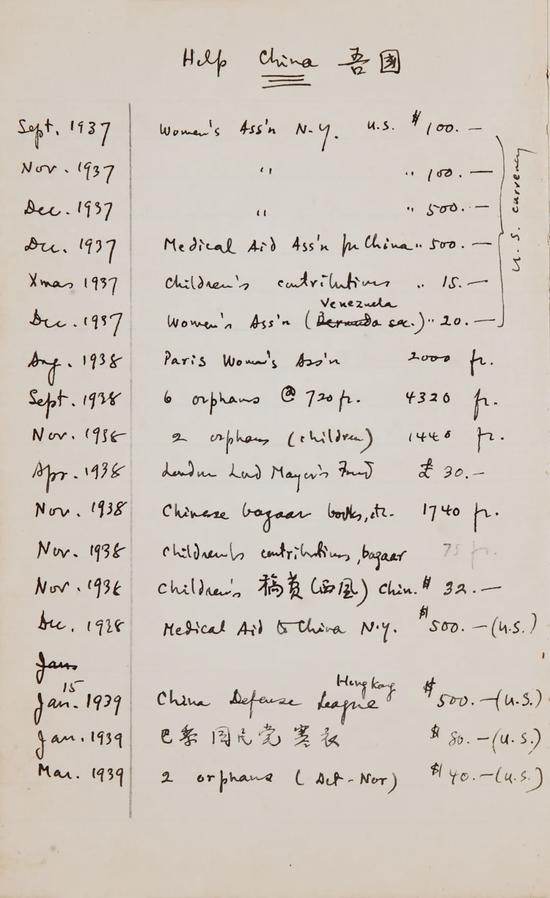 Help China 吾國
Sept. 1937 Women's Ass'n N.Y. U.S. $100.—
Nov. 1937 " " 100.—
Dec. 1937 " " 500.—
Dec. 1937 Medical Aid Ass'n for China " 500.—
Xmas 1937 Children's contributions " 15.—
Venezuela
Dec. 1937 Women's Ass'n (Bermuda sec.) " 20.—
U.S. currency
Aug. 1938 Paris Women's Ass'n 2000 fr.
Sept. 1938 6 orphans @ 720 fr. 4320 fr.
Nov. 1938 2 orphans (children) 1440 fr.
Apr. 1938 London Lord Mayor's Fund £ 30.—
Nov. 1938 Chinese bazaar books, etc. 1740 fr.
Nov. 1938 Children's contributions, bazaar 75 fr.
Nov. 1938 Children's 稿費 (西風) Chin. $ 32.—
Dec. 1938 Medical Aid to China N.Y. $500.—(U.S.)
Jan
Hongkong
Jan. 15 1939 China Defense League $500.—(U.S.)
Jan. 1939 巴黎國民党寒衣 $ 80.—(U.S.)
Mar. 1939 2 orphans (Oct-Nov) $ 40.—(U.S.)